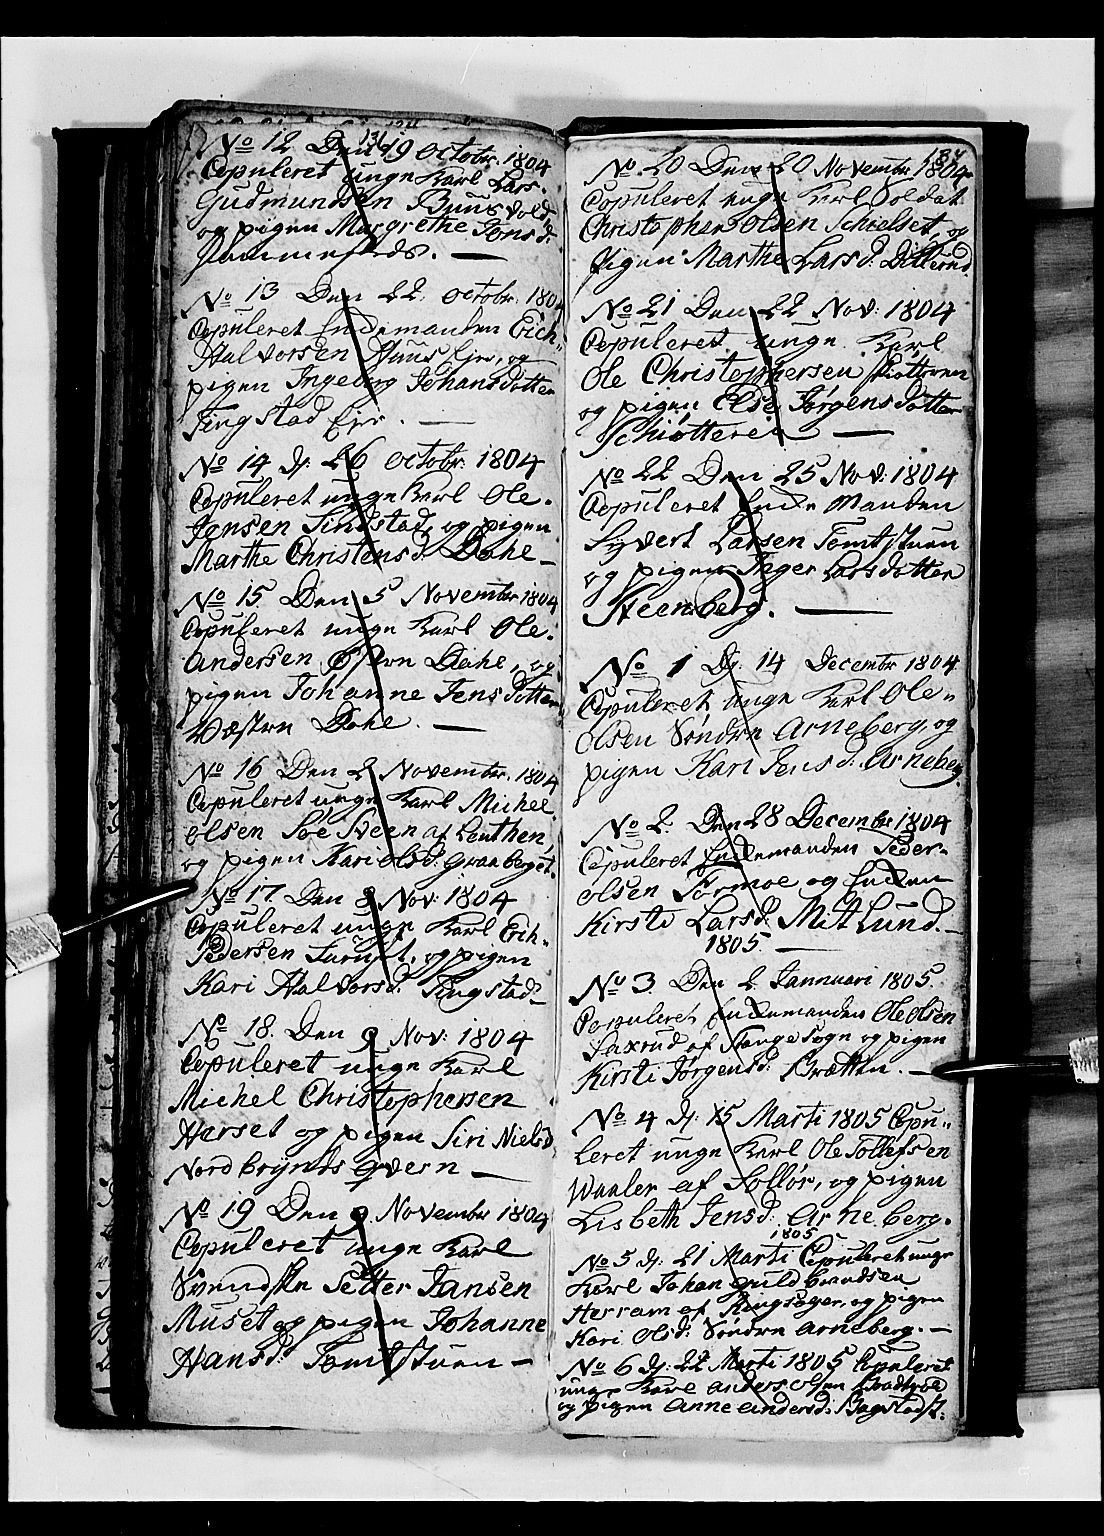 131
No 12 Den 19 Octobr. 1804
Copuleret unge Karl Lars
Gudmundsen Buusvold
og pigen Margrethe Jonsd:
No 13 Den 22. Octobr. 1804
Copuleret Enkemanden Erich
Halvorsen Huus Eje, og
pigen Ingeborg Johansdotter
Tingstad Eje.
No 14 d: 26 Octobr: 1804
Copuleret unge Karl Ole
Jensen Sindstad, og pigen
Marthe Christensd: Dahe
No 15. Den 5 November 1804
Copuleret unge Karl Ole
Andersen Østre Dahe, og
pigen Johanne Jensdotter
Væstre Dahe.
No 16 Den 2 November. 1804
Copuleret unge Karl Michel
Olsen Soe Sveen af Leuthen,
og pigen Kari Olsd: Graaberget.
No 17. Den 8 Nov: 1804
Copuleret unge Karl Erich
Pedersen, og pigen
Kari Halvorsd: Tingstad
No 18. Den 9 Nov: 1804
Copuleret unge Karl
Michel Christophersen
Herset og pigen Siri Nielsd
Nordbrynds qvern
No 19 Den 9. November 1804
Copuleret unge Karl
Svend Petter Jansen
Muset og pigen Johanne
Hansd: Tomtstuen
134
No. 20 Den 20 November 1804
Copuleret unge Karl Soldat
Christopher Olsen Schielset, og
Pigen Marthe Larsd: Ditterud
No 21 Den 22 Nov: 1804
Copuleret unge Karl
Ole Christophersen Skiötteren
og pigen Else Jørgensdotter
Schiötteren
No 22 Den 25 Nov: 1804
Copuleret Enke Manden
Syvert Larsen Tomtstuen
og pigen Inger Larsdotter
Steenberg.
No 1 D: 14 Decembr 1804
Copuleret unge Karl Ole
Olsen Søndre Arneberg, og
pigen Kari Jensd: Arneberg.
No 2. Den 28 December 1804
Copuleret Enkemanden Peder
Olsen Formoe og Enken
Kirsti Larsd: Mit Lund.
1805
No 3. Den 2 Jannuari 1805.
Copuleret Enkemanden Ole Olsen
Saxrud af Stange Sogn og pigen
Kirsti Jørgensd: Brætten.
No 4 d: 15 Marti 1805 Copu
leret unge Karl Ole Tollefsen
Waaler af Sollör, og pigen
Lisbeth Jensd: Arneberg.
1805
No 5 d: 21 Marti Copuleret unge
Karl Johan Guldbrandsen
Herram af Ringsager, og pigen
Kari Olsd: Søndre Arneberg.
No 6 d: 22 Marti 1805 Copuleret
unge Karl Anders Olsen
og pigen Anne Andersd: Bagstad